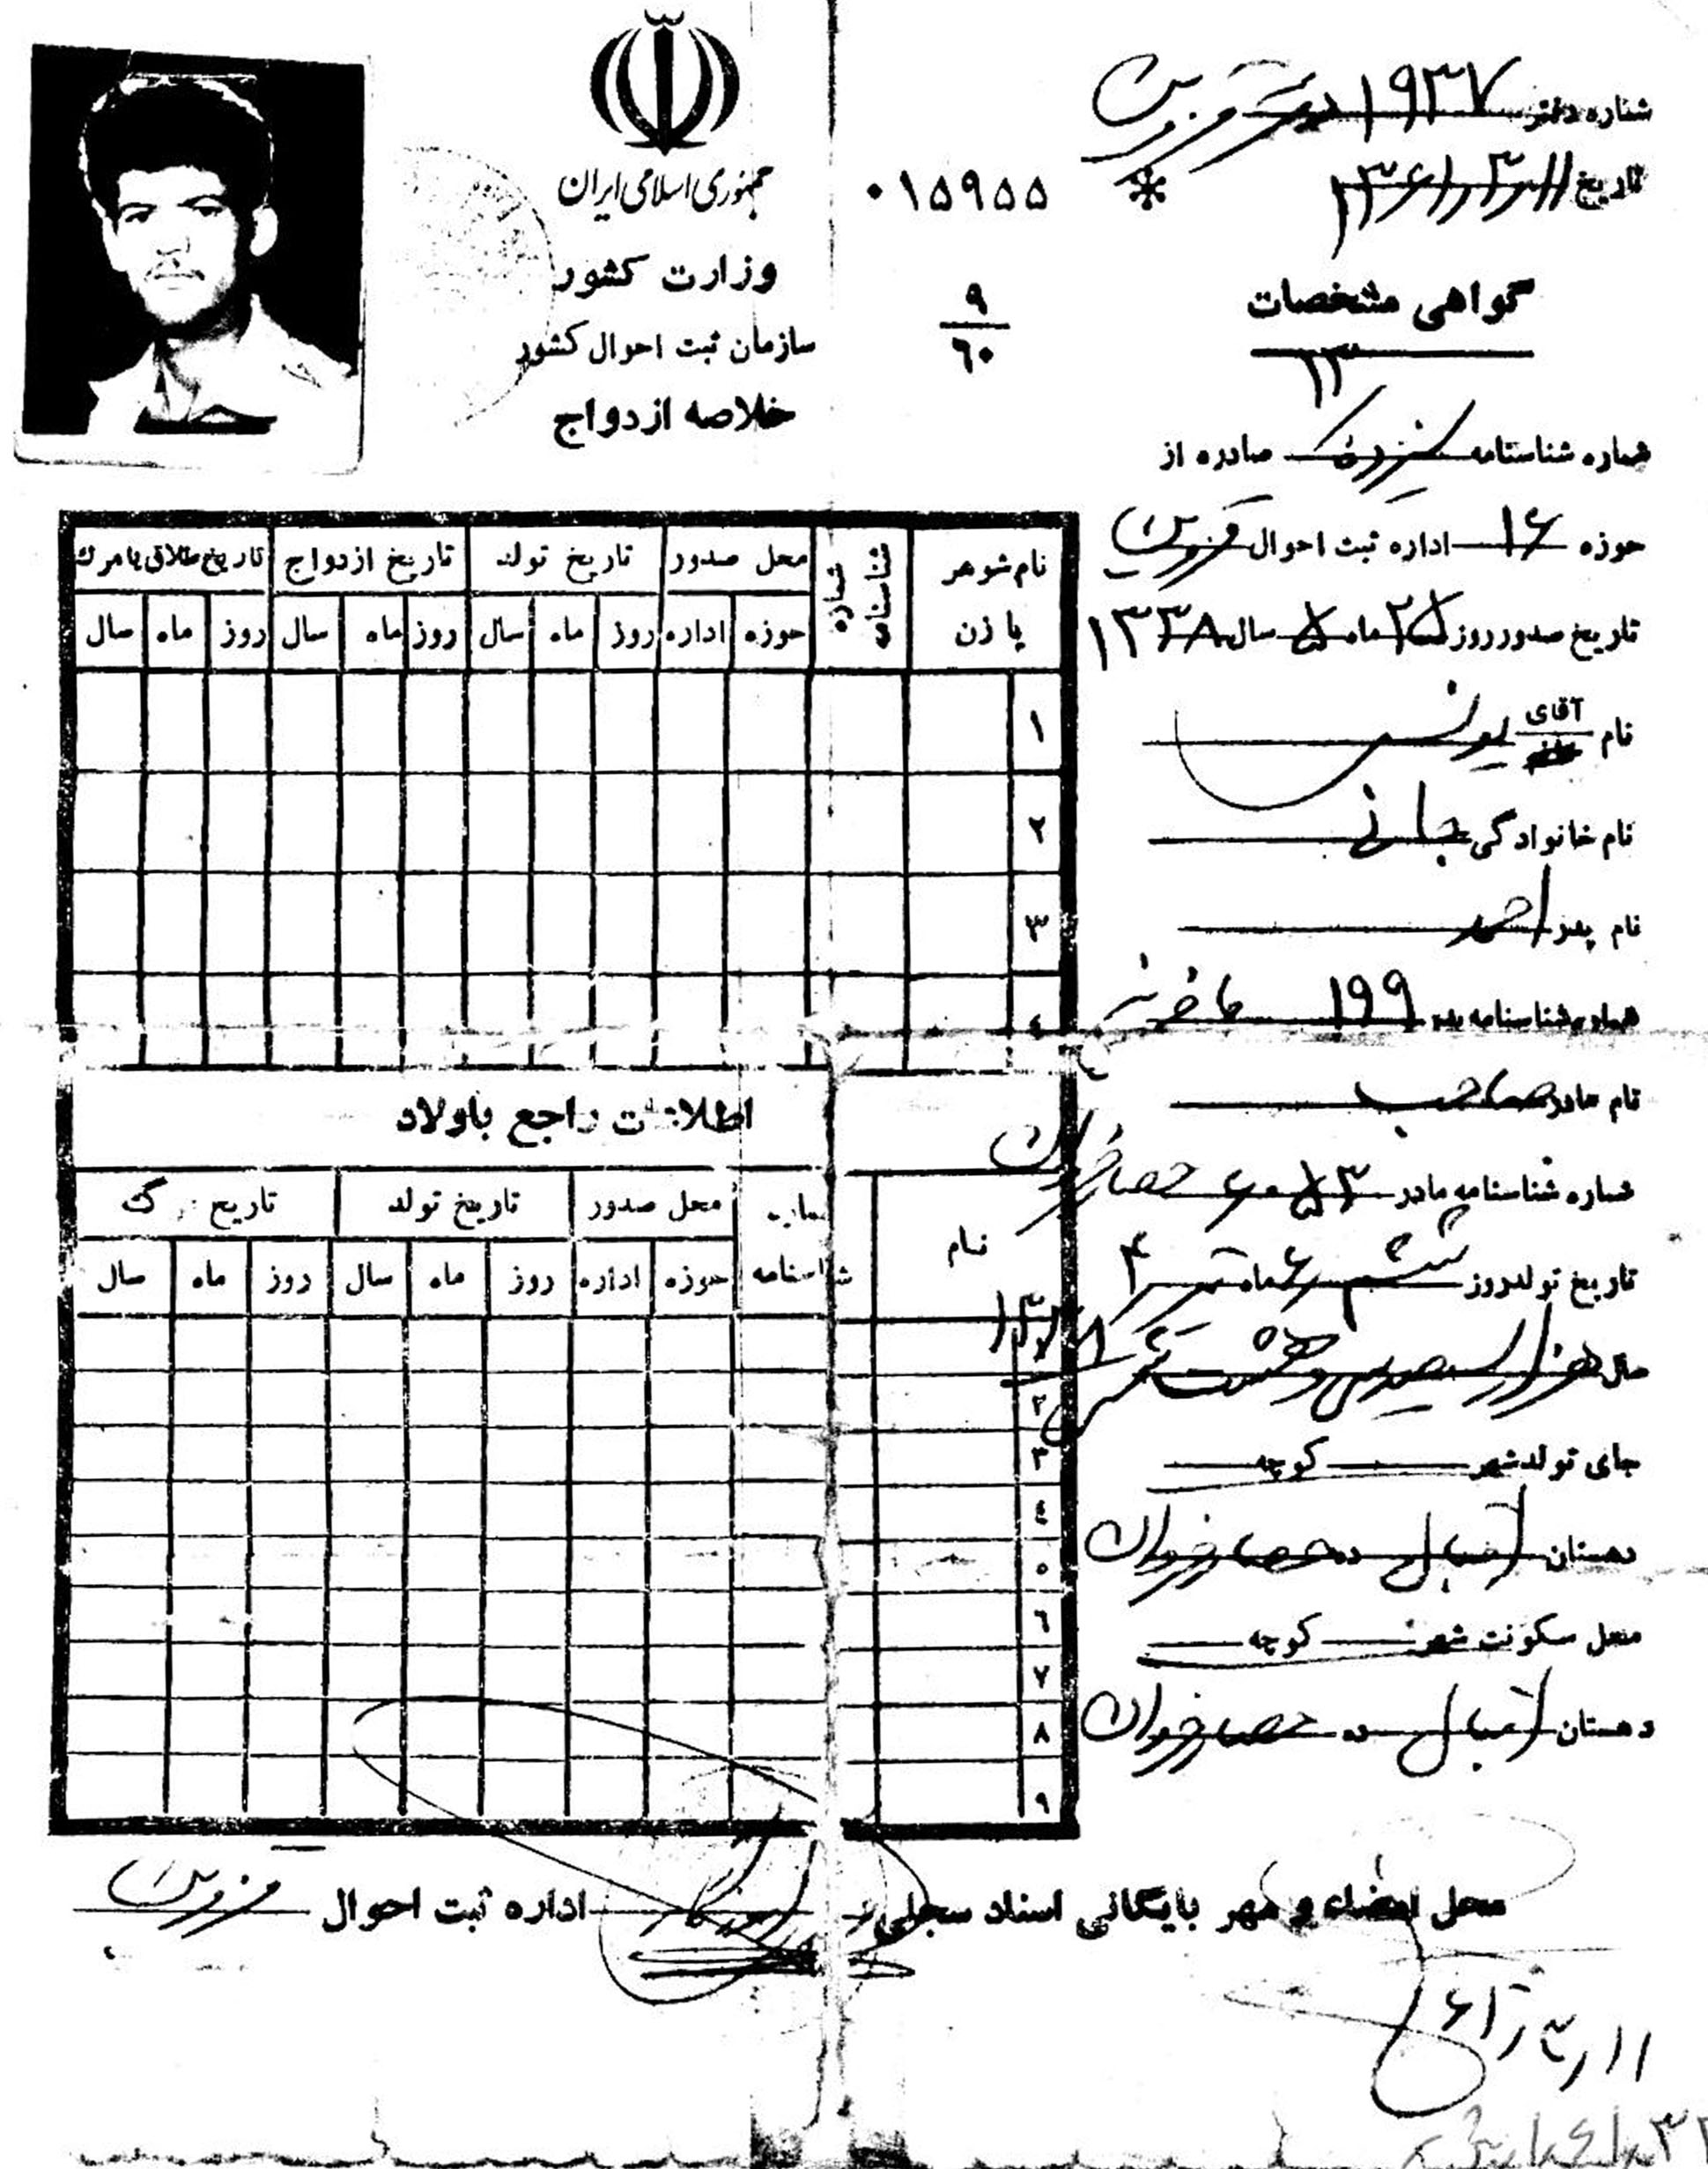 جمهوری اسلامی ایران
وزارت کشور
سازمان ثبت احوال کشور
خلاصه ازدواج
۰۱۵۹۵۵
۹
۶۰
شماره دفتر ۱۹۳۷ قزوین
تاریخ ۱۱ر۳ر۱۳۶۱
گواهی مشخصات
۱۳
شماره شناسنامه سیزده صادره از
حوزه ۱۶ اداره ثبت احوال قزوین
تاریخ صدور روز ۲۵ ماه ۵ سال ۱۳۳۸
نام آقای یونس
نام خانوادگی جانی
نام پدر احمد
شماره شناسنامه پدر ۱۹۹
نام مادر صاحب
شماره شناسنامه مادر حصارخروان
تاریخ تولد روز ششم ۶ ماه تیر ۴
سال هزار سیصد سی و هشت شمسی ۱۳۳۸
جای تولد شهر کوچه
دهستان اقبال ده حصارخروان
محل سکونت شهر کوچه
دهستان اقبال ده حصارخروان
نام شوهر یا زن
شماره شناسنامه
محل صدور
تاریخ تولد
تاریخ ازدواج
تاریخ طلاق یا مرگ
حوزه اداره روز ماه سال روز ماه سال روز ماه سال
۱
۲
۳
۴
اطلاعات راجع باولاد
نام
شماره شناسنامه
محل صدور
تاریخ تولد
تاریخ مرگ
حوزه اداره روز ماه سال روز ماه سال
۲
۳
۴
۵
۶
۷
۸
۹
محل امضاء و مهر بایگانی اسناد سجلی اداره ثبت احوال قزوین
۱۱ر۳ر۶۱